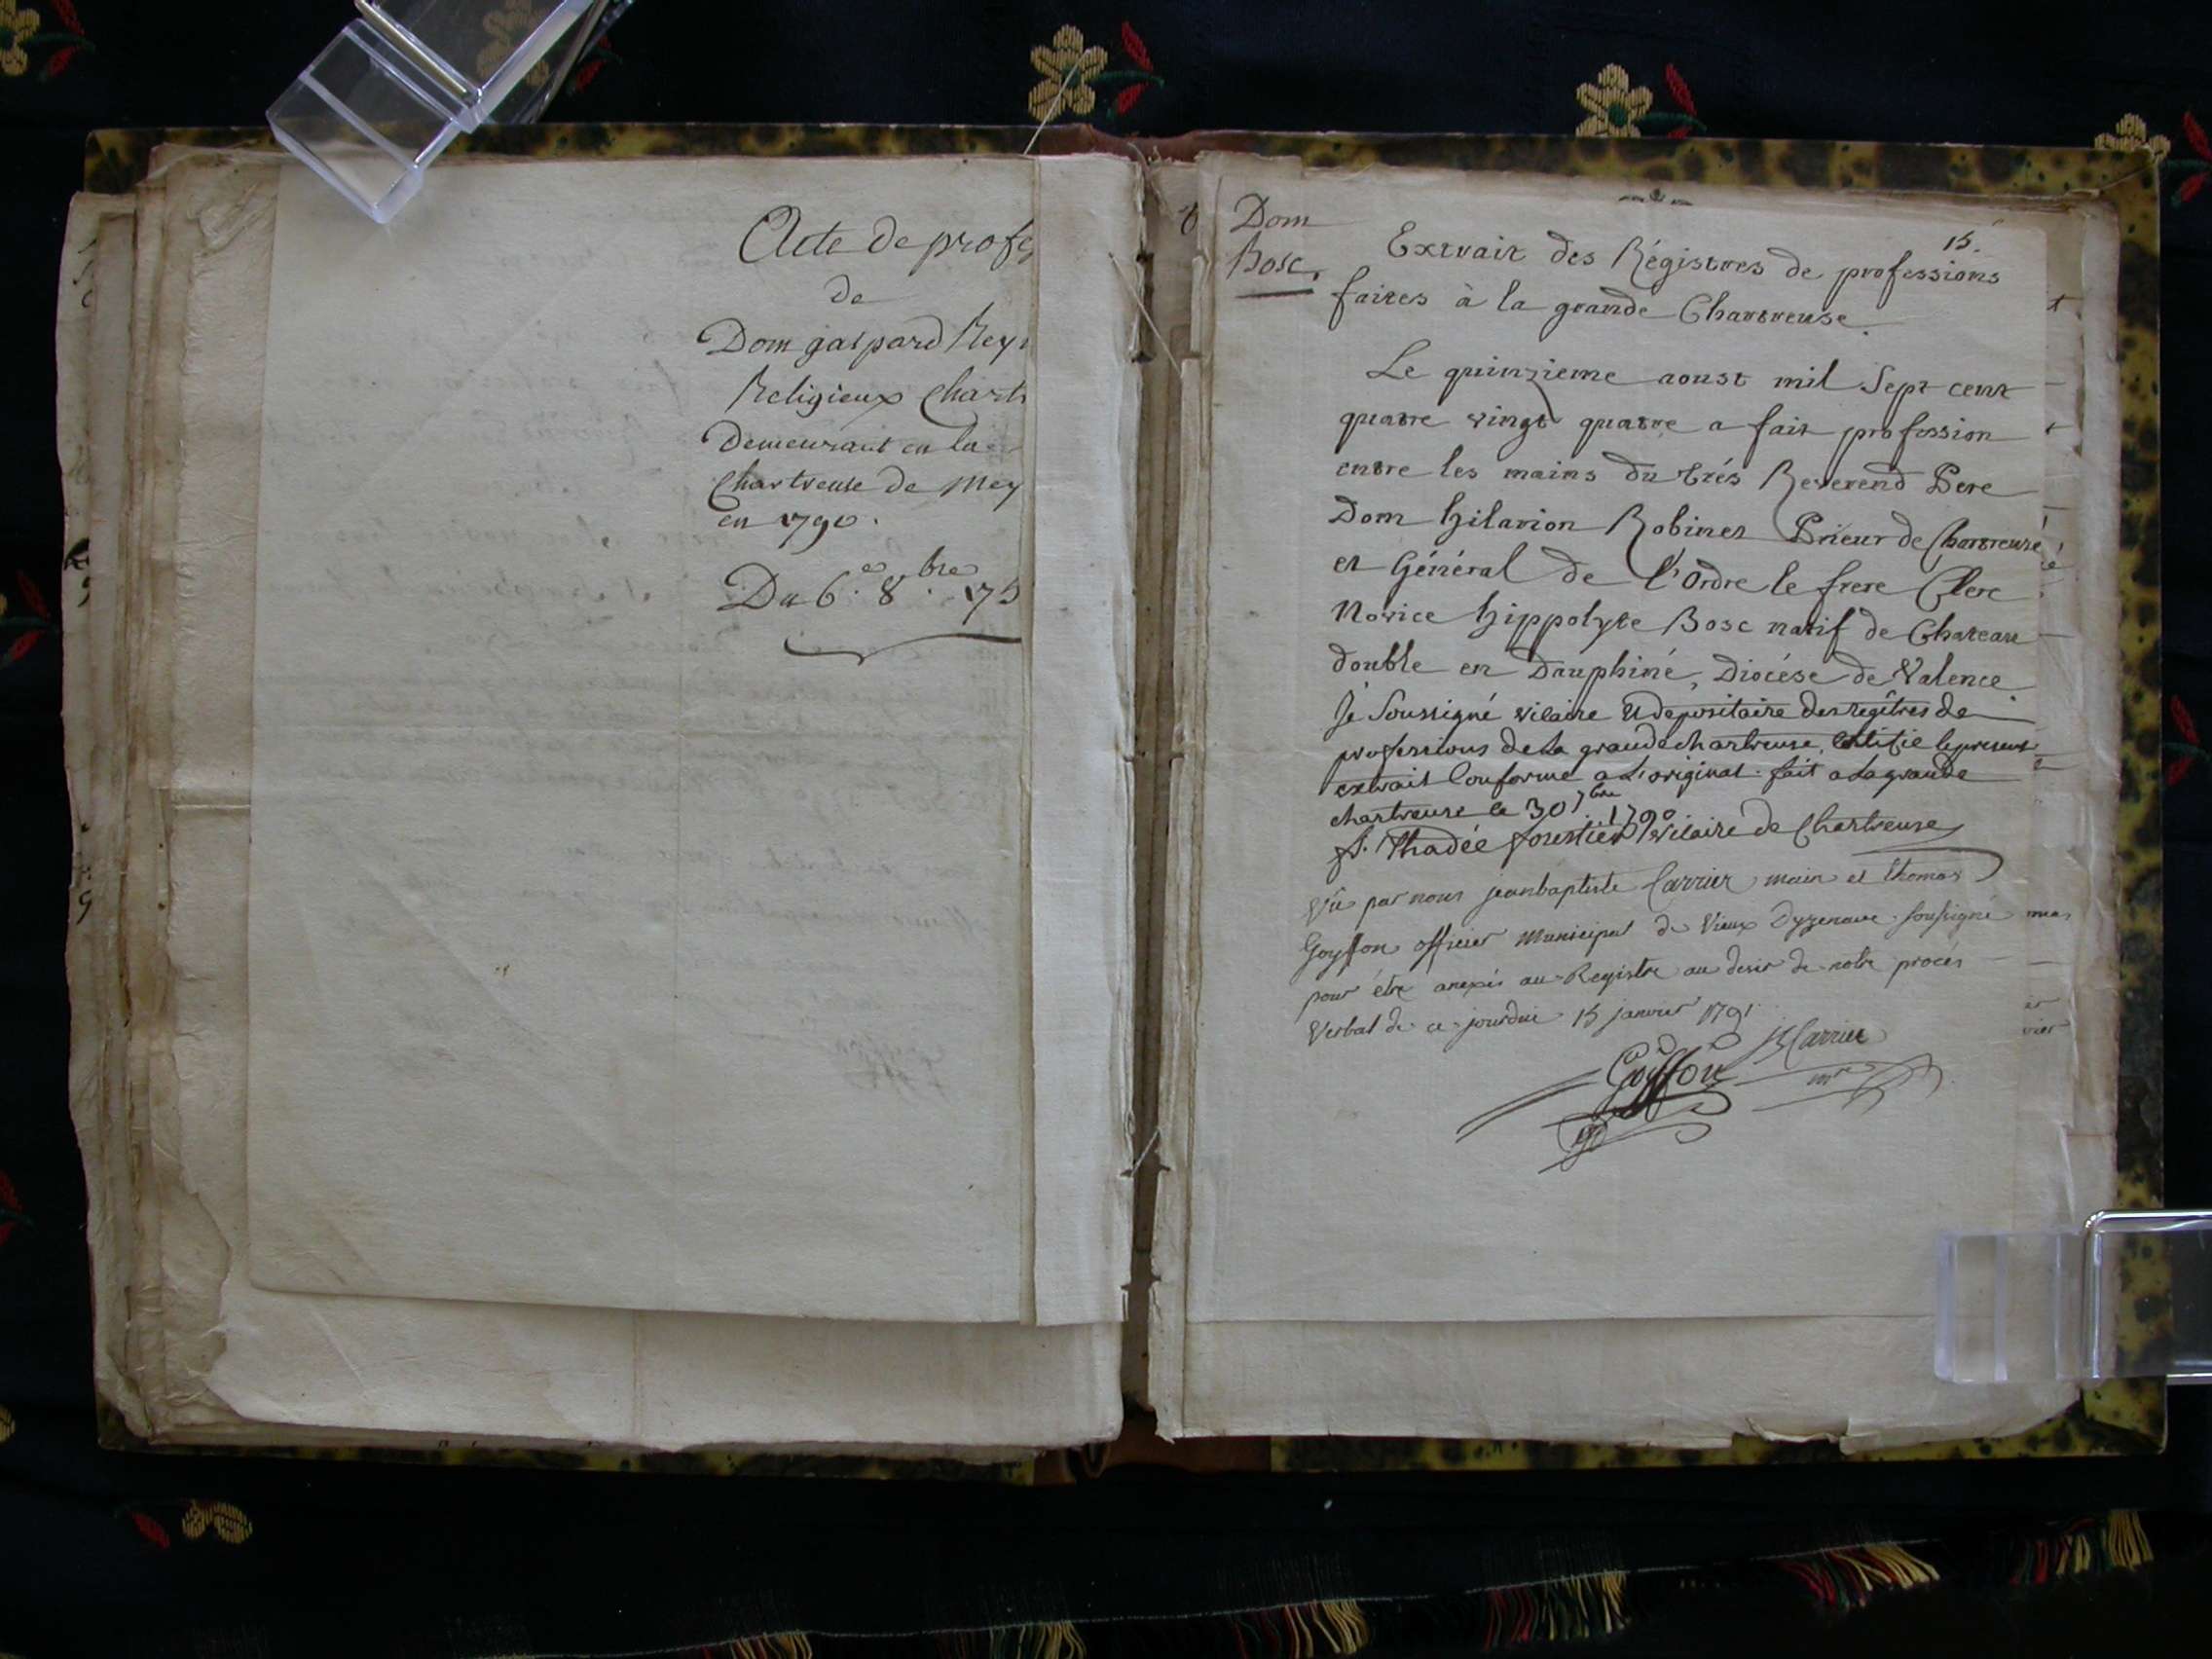 Acte de profe
de
Dom gaspard Rey
Religieux Chart
demeurant en la
Chartreuse de Mey
en 1790.
Du 6.e 8.bre 17
Dom
Bosc.
15.
Extrait des Régistres de professions
faites à la grande Chartreuse.
Le quinzieme aoust mil Sept cent
quatre vingt quatre a fait profession
entre les mains du trés Reverend Pere
Dom hilarion Robinet Prieur de Chartreuse
et Général de l'Ordre le frere Clerc
Novice hippolyte Bosc natif de Chateau
double en Dauphiné, Diocése de Valence.
Je Soussigné vicaire et depositaire des regîtres de
professions de la grande chartreuse, certifie le present
extrait Conforme a L'original. fait a la grande
chartreuse le 30 7bre 1790
f. Thadée forestier vicaire de Chartreuse
Vû par nous jean baptiste Carrier maire et thomas
Goyffon officier Municipal de Vieux Dyzenave soussigné
pour étre anexés au Registre au desir de notre procés
Verbal de ce jourdui 15 janvier 1791.
Goyffon JB Carrier
mre